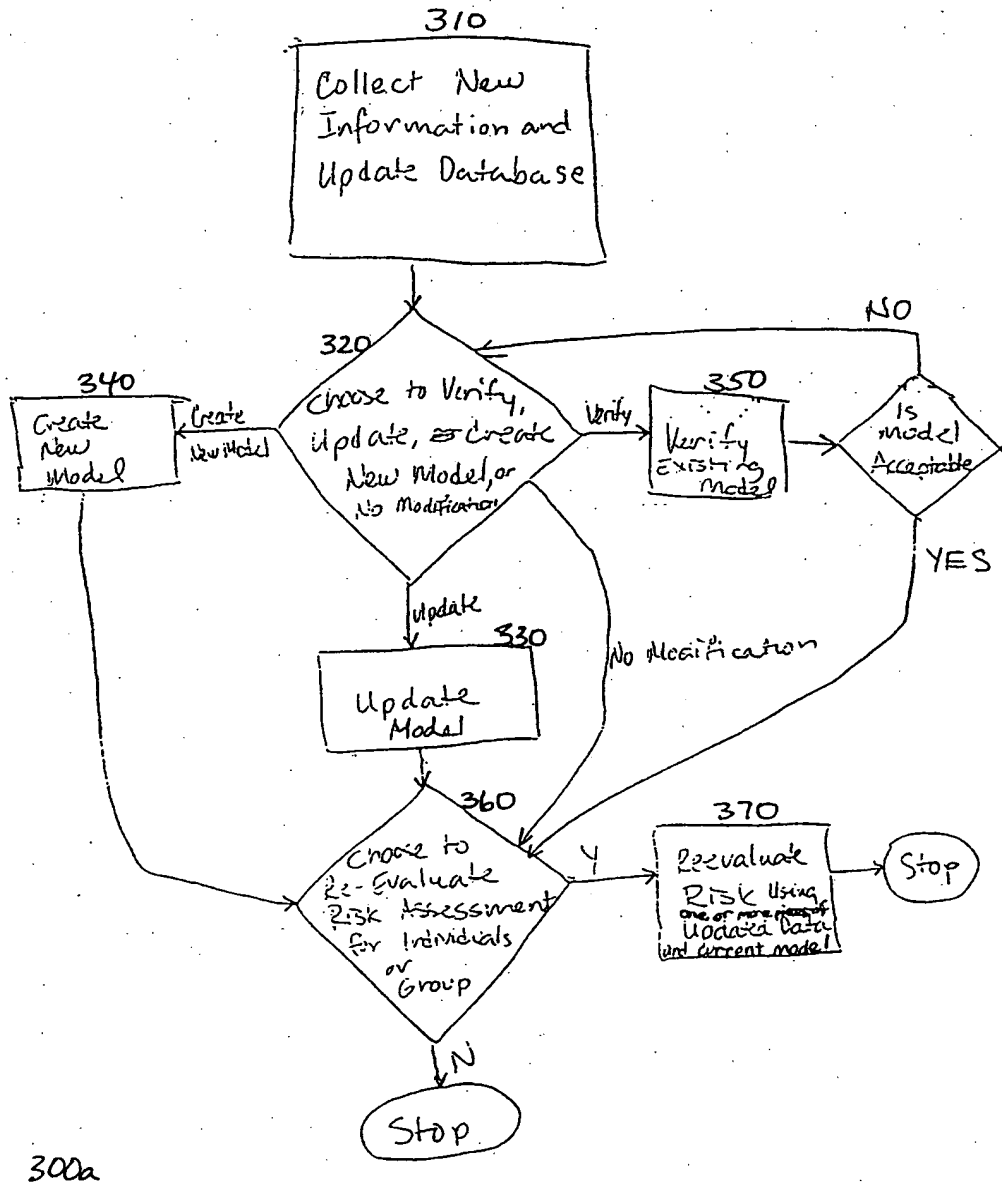 310
Collect New
Information and
Update Database
NO
320
Choose to Verify,
Update, or Create
New Model, or
No Modification
340
Create
New
Model
Create
New Model
Verify
350
Verify
Existing
Model
Is
Model
Acceptable
YES
Update
330
Update
Model
No Modification
360
Choose to
Re-Evaluate
Risk Assessment
for Individuals
or
Group
Y
370
Reevaluate
Risk Using
one or more pieces of
Updated Data
and current model
Stop
N
Stop
300a